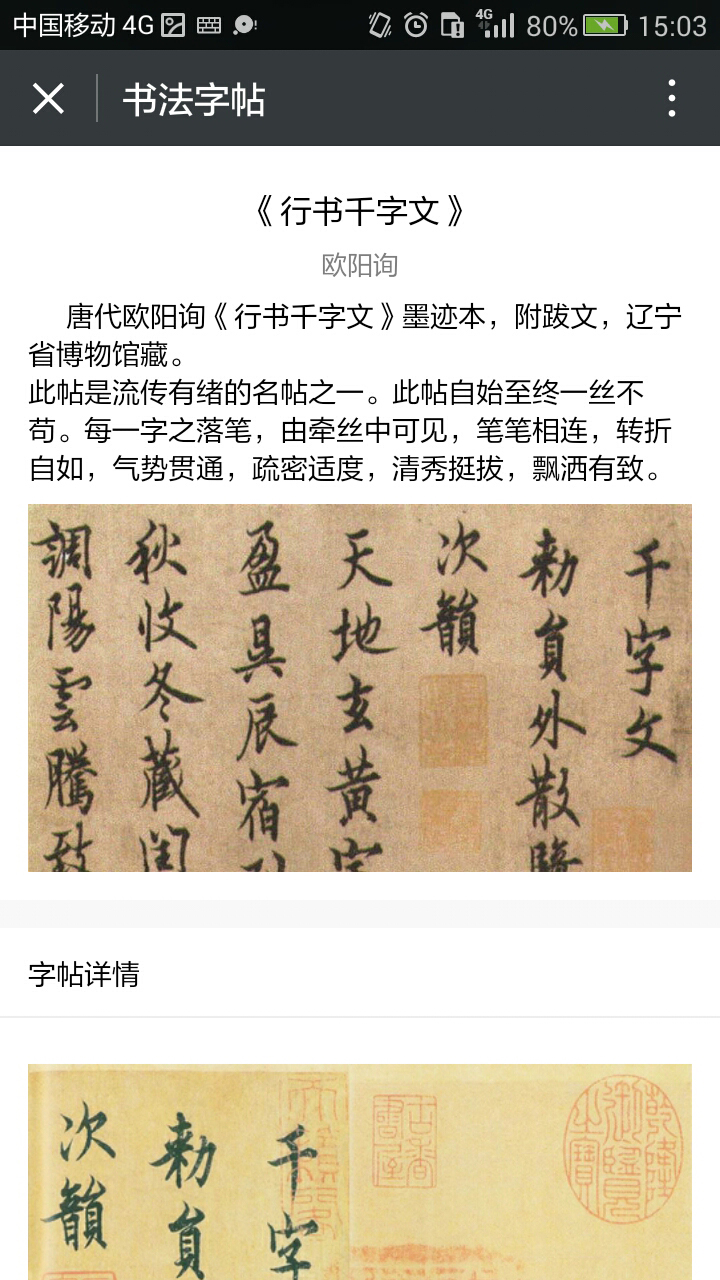 中国移动 4G 4G 80% 15:03
书法字帖
《行书千字文》
欧阳询
唐代欧阳询《行书千字文》墨迹本，附跋文，辽宁
省博物馆藏。
此帖是流传有绪的名帖之一。此帖自始至终一丝不
苟。每一字之落笔，由牵丝中可见，笔笔相连，转折
自如，气势贯通，疏密适度，清秀挺拔，飘洒有致。
千字文
勅員外散騎
次韻
天地玄黄宇
盈昃辰宿列
秋收冬藏閏
調陽雲騰致
字帖详情
乾隆御覽之寶
古香書屋
千字
勅員
次韻